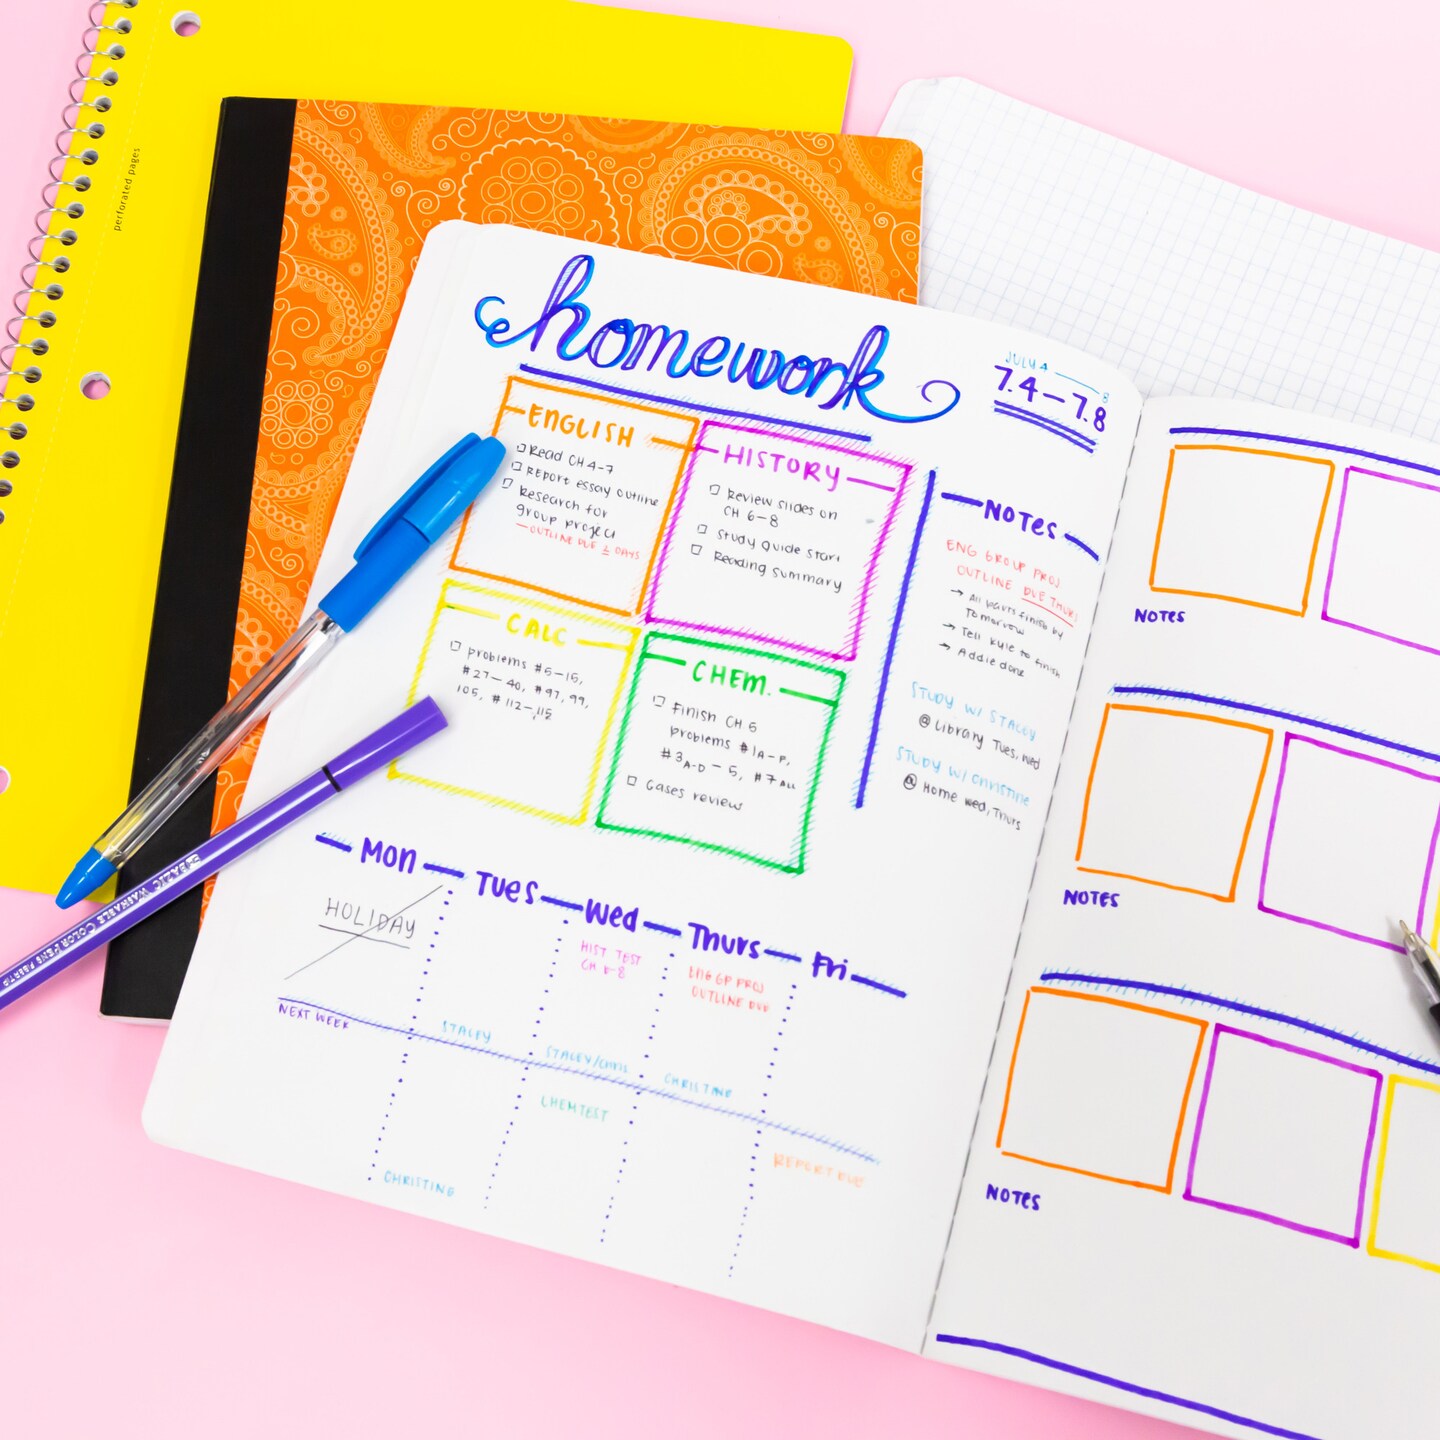 perforated pages
homework
JULY 4 — 8
7.4 – 7.8
ENGLISH
Read CH 4-7
REPORT ESSAY OUTLINE
Research for
group project
— OUTLINE DUE 2 DAYS
HISTORY
Review slides on
CH 6-8
Study Guide start
Reading summary
CALC
problems #5-15,
#27-40, #97, 99,
105, #112-115
CHEM.
Finish CH 5
problems #1A-F,
#3A-D - 5, #7ALL
Gases review
NOTES
ENG GROUP PROJ.
OUTLINE DUE THUR!
→ All parts finish by
Tomorrow
→ Tell Kyle to finish
→ Addie done
STUDY W/ STACEY
@ Library Tues, Wed
STUDY W/ CHRISTINE
@ Home Wed, Thurs
MON
TUES
Wed
Thurs
Fri
HOLIDAY
HIST TEST
CH 6-8
ENG GP PROJ
OUTLINE DUE
STACEY
STACEY/
CHRISTINE
NEXT WEEK
CHEM TEST
REPORT DUE
CHRISTINE
NOTES
NOTES
NOTES
WASHABLE COLOR PENS